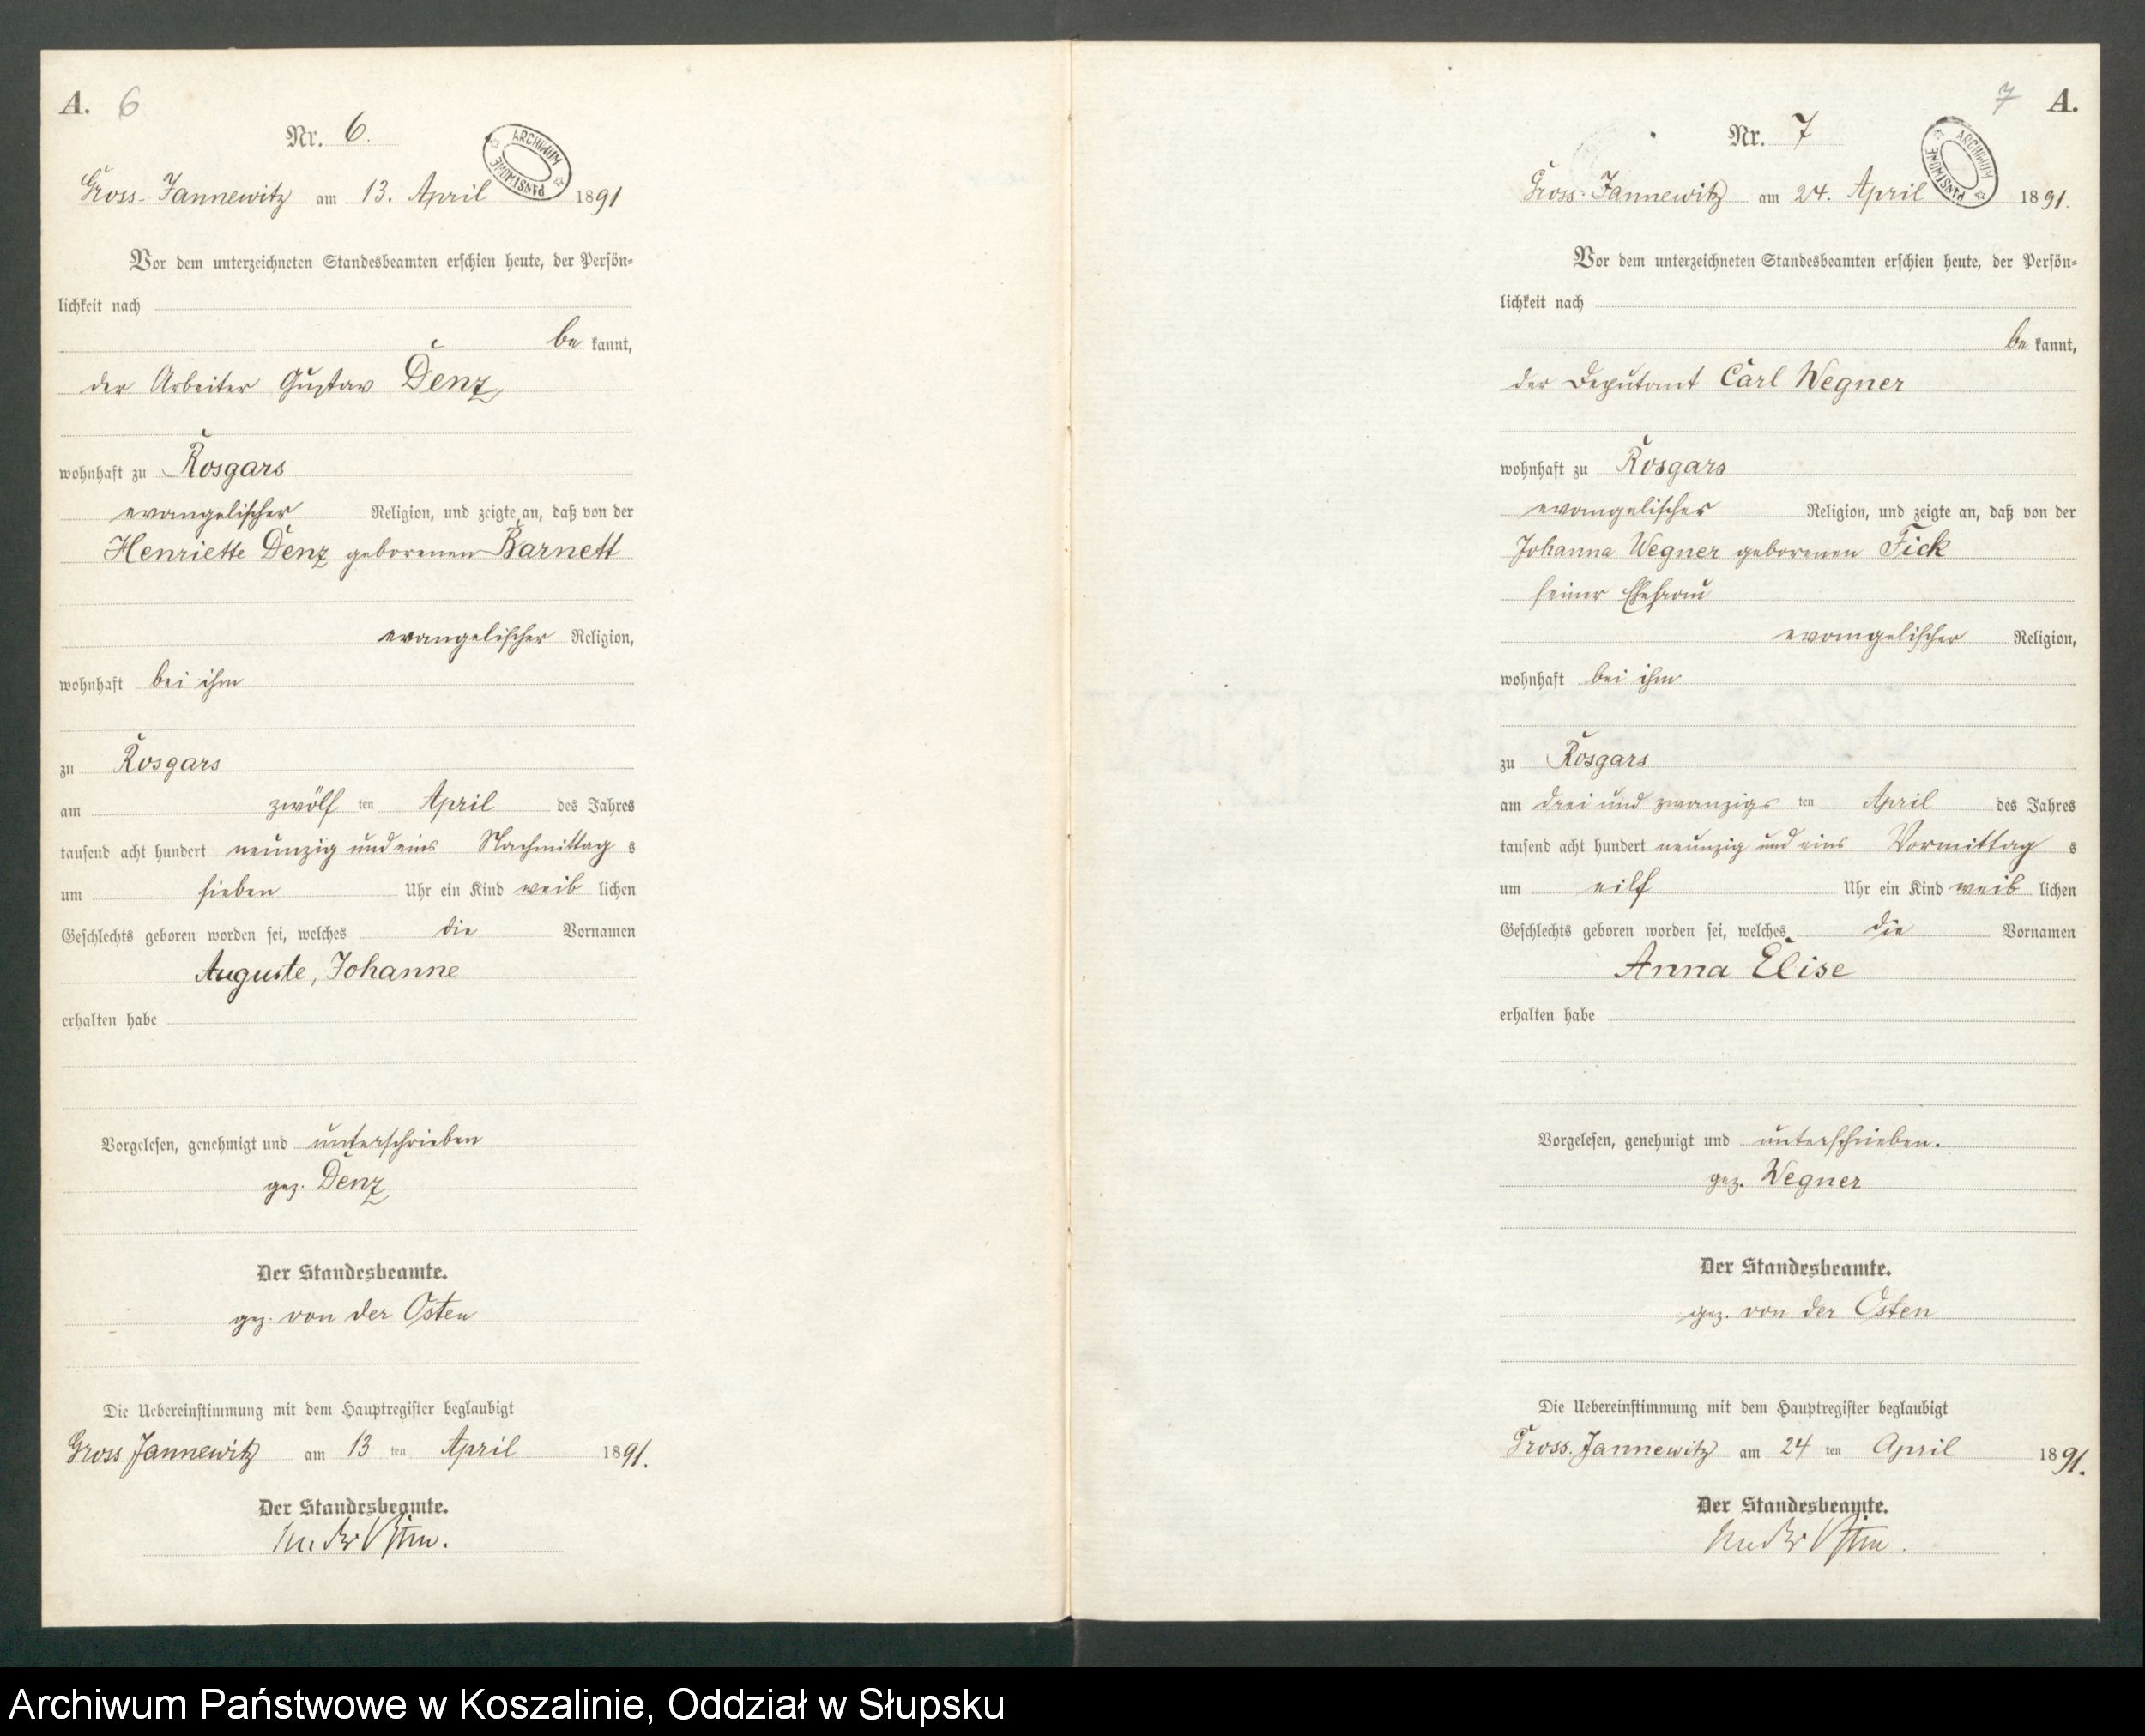 A. 6
Nr. 6.
ARCHIWUM PAŃSTWOWE
Gross-Jannewitz am 13. April 1891
Vor dem unterzeichneten Standesbeamten erschien heute, der Persön-
lichkeit nach
be kannt,
der Arbeiter Gustav Denz
wohnhaft zu Rosgars
evangelischer Religion, und zeigte an, daß von der
Henriette Denz geborenen Barnett
evangelischer Religion,
wohnhaft bei ihm
zu Rosgars
am zwölf ten April des Jahres
tausend acht hundert neunzig und eins Nachmittag s
um sieben Uhr ein Kind weib lichen
Geschlechts geboren worden sei, welches die Vornamen
Auguste, Johanne
erhalten habe
Vorgelesen, genehmigt und unterschrieben
gez. Denz
Der Standesbeamte.
gez. von der Osten
Die Uebereinstimmung mit dem Hauptregister beglaubigt
Gross Jannewitz am 13 ten April 1891.
Der Standesbeamte.
von der Osten.
7 A.
Nr. 7
ARCHIWUM PAŃSTWOWE
Gross-Jannewitz am 24. April 1891.
Vor dem unterzeichneten Standesbeamten erschien heute, der Persön-
lichkeit nach
be kannt,
der Deputant Carl Wegner
wohnhaft zu Rosgars
evangelischer Religion, und zeigte an, daß von der
Johanna Wegner geborenen Fick
seiner Ehefrau
evangelischer Religion,
wohnhaft bei ihm
zu Rosgars
am drei und zwanzigs ten April des Jahres
tausend acht hundert neunzig und eins Vormittag s
um eilf Uhr ein Kind weib lichen
Geschlechts geboren worden sei, welches die Vornamen
Anna Elise
erhalten habe
Vorgelesen, genehmigt und unterschrieben.
gez. Wegner
Der Standesbeamte.
gez. von der Osten
Die Uebereinstimmung mit dem Hauptregister beglaubigt
Gross. Jannewitz am 24 ten April 1891.
Der Standesbeamte.
von der Osten.
Archiwum Państwowe w Koszalinie, Oddział w Słupsku